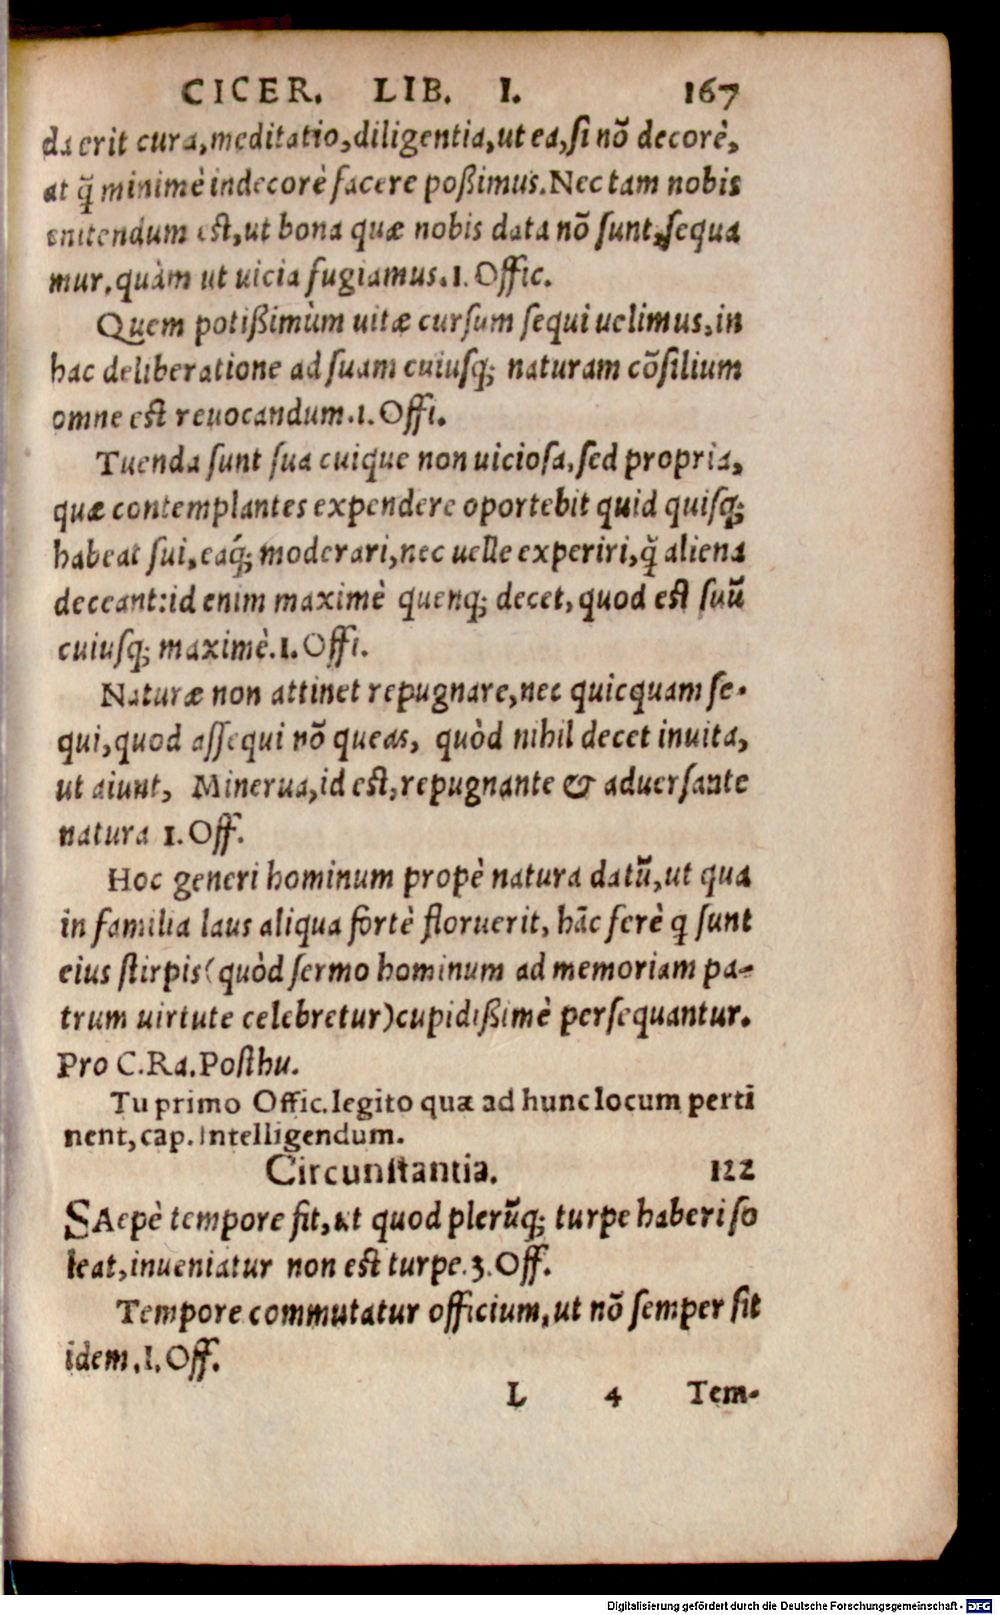 CICER. LIB. I. 167
da erit cura, meditatio, diligentia, ut ea, si nõ decorè,
at q̃ minimè indecorè facere poßimus. Nec tam nobis
enitendum est, ut bona quæ nobis data nõ sunt, sequa
mur, quàm ut uicia fugiamus. 1. Offic.
Quem potißimùm uitæ cursum sequi uelimus, in
hac deliberatione ad suam cuiusq; naturam cõsilium
omne est reuocandum. 1. Offi.
Tuenda sunt sua cuique non uiciosa, sed propria,
quæ contemplantes expendere oportebit quid quisq;
habeat sui, eaq́; moderari, nec uelle experiri, q̃ aliena
deceant: id enim maximè quenq; decet, quod est suũ
cuiusq; maximè. 1. Offi.
Naturæ non attinet repugnare, nec quicquam se-
qui, quod assequi nõ queas, quòd nihil decet inuita,
ut aiunt, Minerua, id est, repugnante & aduersante
natura 1. Off.
Hoc generi hominum propè natura datũ, ut qua
in familia laus aliqua fortè floruerit, hãc ferè q sunt
eius stirpis (quòd sermo hominum ad memoriam pa-
trum uirtute celebretur) cupidißimè persequantur.
Pro C. Ra. Posthu.
Tu primo Offic. legito quæ ad hunc locum perti
nent, cap. Intelligendum.
Circunstantia. 122
SAepè tempore fit, ut quod plerũq; turpe haberi so
leat, inueniatur non est turpe. 3. Off.
Tempore commutatur officium, ut nõ semper sit
idem. 1. Off.
L 4 Tem-
Digitalisierung gefördert durch die Deutsche Forschungsgemeinschaft - DFG